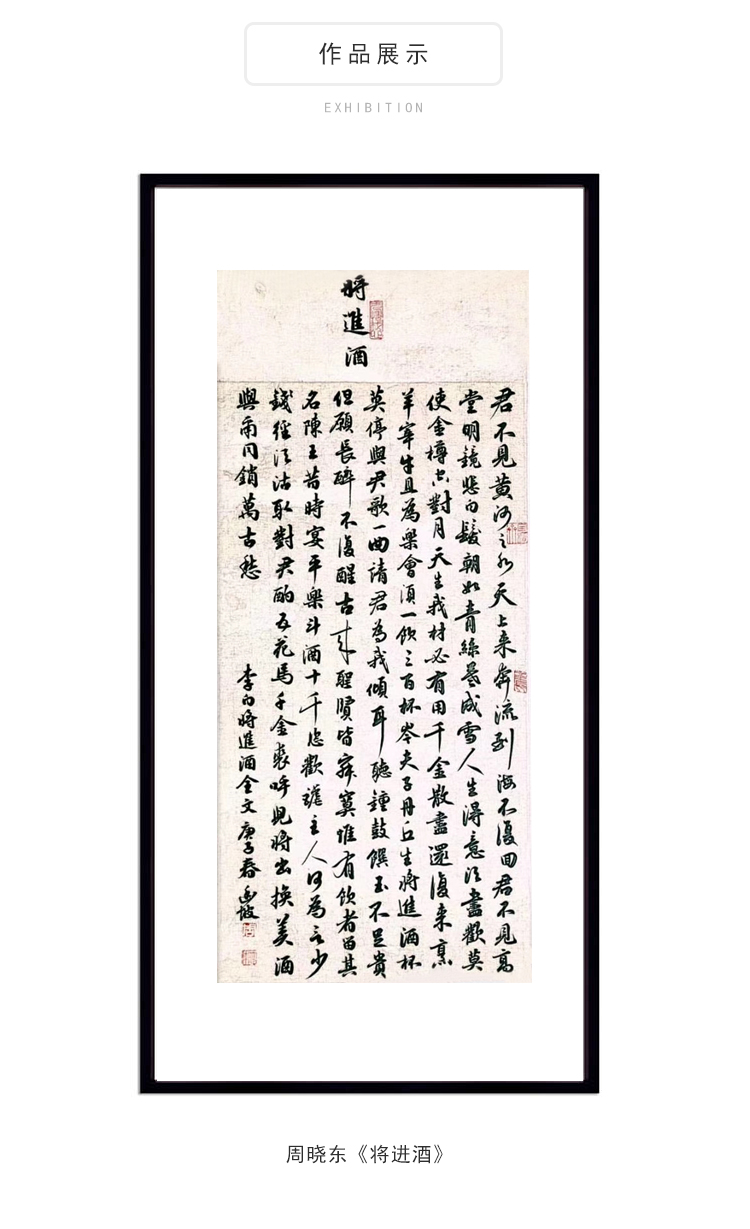 作品展示
EXHIBITION
將進酒
君不見黄河之水天上来奔流到海不復回君不見高
堂明鏡悲白髮朝如青絲暮成雪人生得意須盡歡莫
使金樽空對月天生我材必有用千金散盡還復来烹
羊宰牛且為樂會須一飲三百杯岑夫子丹丘生將進酒杯
莫停與君歌一曲請君為我傾耳聽鐘鼓饌玉不足貴
但願長醉不復醒古来聖賢皆寂寞惟有飲者留其
名陳王昔時宴平樂斗酒十千恣歡謔主人何為言少
錢徑須沽取對君酌五花馬千金裘呼兒將出換美酒
與爾同銷萬古愁
李白將進酒全文庚子春
周晓东《将进酒》